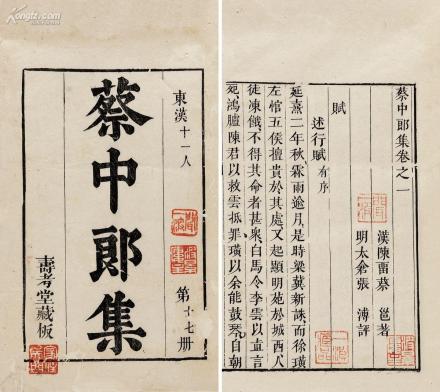 東漢十一人
蔡中郎集
第十七册
壽考堂藏板
蔡中郎集卷之一
漢陳畱蔡 邕著
明太倉張 溥評
賦
述行賦 有序
延熹二年秋霖雨逾月是時梁冀新誅而徐璜
左悺五侯擅貴於其處又起顯明苑於城西人
徒凍餓不得其命者甚衆白馬令李雲以直言
死鴻臚陳君以救雲抵罪璜以余能鼓琴自朝